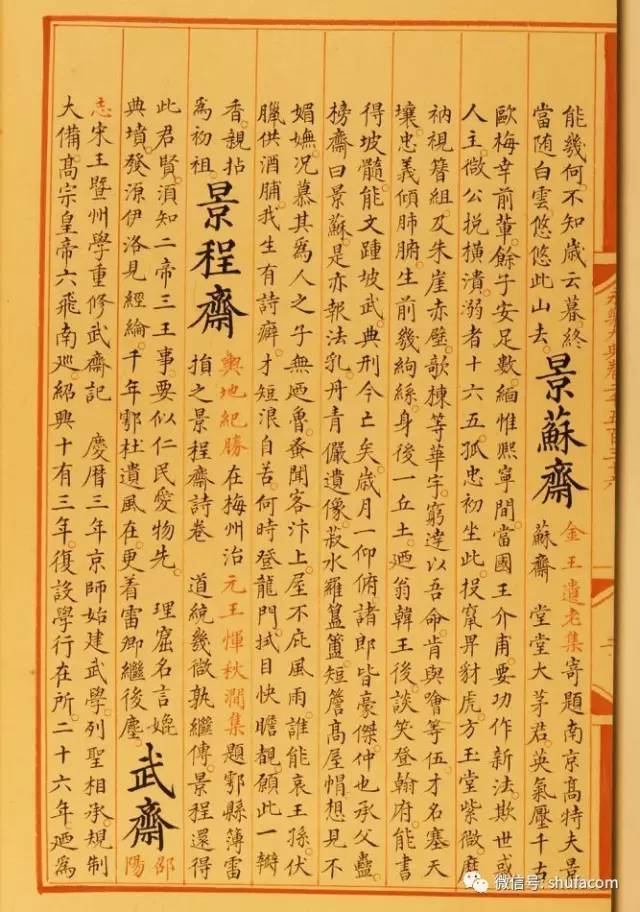 永樂大典卷之二千五百三十六
能幾何不知歲云暮終
當隨白雲悠悠此山去
景蘇齋
金王遺老集寄題南京高特夫景
蘇齋 堂堂大茅君英氣壓千古
歐梅幸前輩餘子安足數緬惟熙寧間當國王介甫要功作新法欺世或
人主倣公挽橫潰溺者十六五孤忠初坐此投竄畀豺虎方玉堂紫微麾
衲視簪組及朱崖赤壁歌棟等華宇窮達以吾命肯與噲等伍才名塞天
壤忠義傾肺腑生前幾絇絲身後一丘土廼翁韓王後談笑登翰府能書
得坡髓能文踵坡武典刑今亡矣歲月一仰俯諸郎皆豪傑仲也承父蠱
榜齋曰景蘇是亦報法乳丹青儼遺像菽水羅簠簋短簷高屋帽想見不
媚嫵況慕其為人之子無廼魯蚤聞客汴上屋不庇風雨誰能哀王孫伏
臘供酒脯我生有詩癖才短浪自苦何時登龍門拭目快瞻覩願此一瓣
香親拈
為初祖
景程齋
輿地紀勝在梅州治元王惲秋澗集題鄠縣簿雷
損之景程齋詩卷 道統幾微孰繼傳景程還得
此君賢須知二帝三王事要似仁民愛物先 理窟名言娩
典墳發源伊洛見經綸千年鄠杜遺風在更着雷卿繼後塵
武齋
邵
陽
志宋王暨州學重修武齋記 慶曆三年京師始建武學列聖相承規制
大備高宗皇帝六飛南巡紹興十有三年復設學行在所二十六年廼為
微信号: shufacom